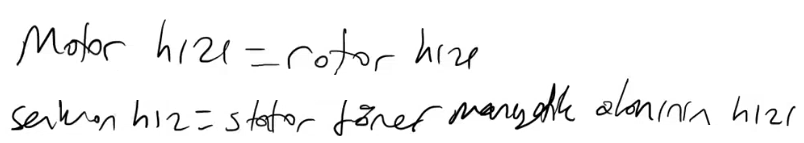 Motor hızı = rotor hızı
senkron hız = stator döner manyetik alanının hızı